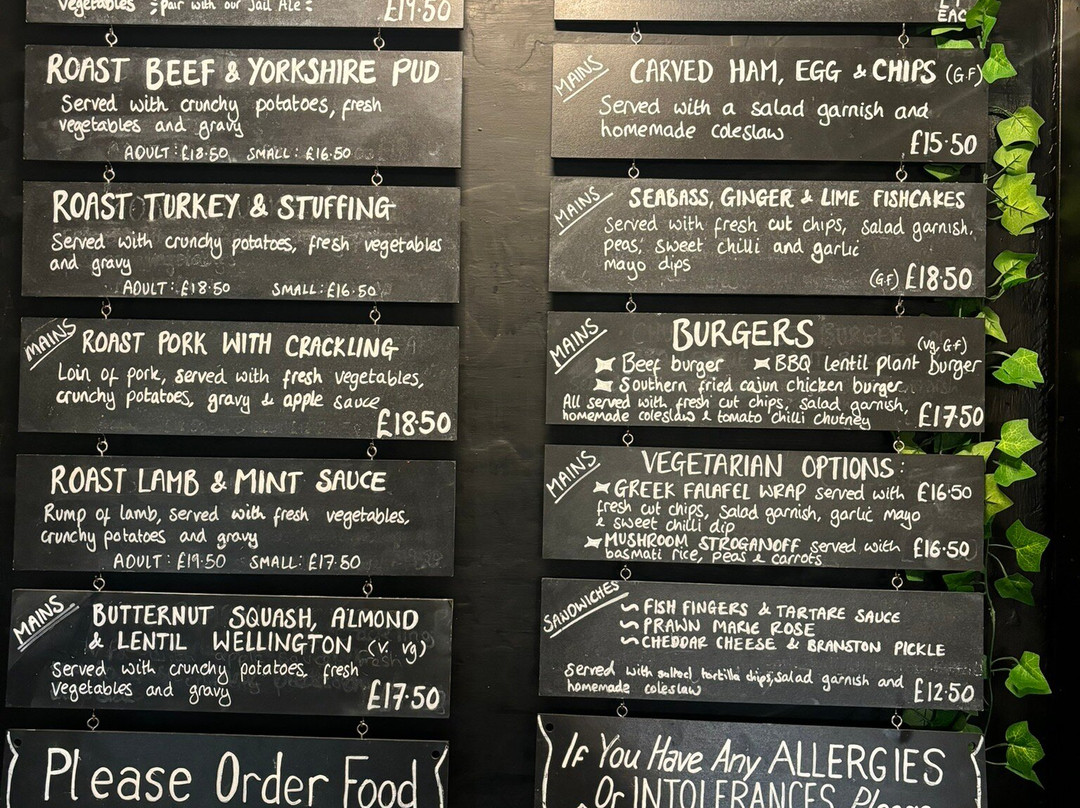 Vegetables pair with our Jail Ale
£19.50
ROAST BEEF & YORKSHIRE PUD
Served with crunchy potatoes, fresh
vegetables and gravy
ADULT: £18.50 SMALL: £16.50
ROAST TURKEY & STUFFING
Served with crunchy potatoes, fresh vegetables
and gravy
ADULT: £18.50 SMALL: £16.50
MAINS
ROAST PORK WITH CRACKLING
Loin of pork, served with fresh vegetables,
crunchy potatoes, gravy & apple sauce
£18.50
ROAST LAMB & MINT SAUCE
Rump of lamb, served with fresh vegetables,
crunchy potatoes and gravy
ADULT: £19.50 SMALL: £17.50
MAINS
BUTTERNUT SQUASH, ALMOND
& LENTIL WELLINGTON (v. vg)
Served with crunchy potatoes, fresh
vegetables and gravy
£17.50
Please Order Food
EAC
MAINS
CARVED HAM, EGG & CHIPS (G.F)
Served with a salad garnish and
homemade coleslaw
£15.50
MAINS
SEABASS, GINGER & LIME FISHCAKES
Served with fresh cut chips, salad garnish,
peas, sweet chilli and garlic
mayo dips
(GF) £18.50
MAINS
BURGERS
(vg, G.F)
Beef burger BBQ Lentil plant burger
Southern fried cajun chicken burger
All served with fresh cut chips, salad garnish,
homemade coleslaw & tomato chilli chutney
£17.50
MAINS
VEGETARIAN OPTIONS:
GREEK FALAFEL WRAP served with £16.50
fresh cut chips, salad garnish, garlic mayo
& sweet chilli dip
MUSHROOM STROGANOFF served with £16.50
basmati rice, peas & carrots
SANDWICHES
FISH FINGERS & TARTARE SAUCE
PRAWN MARIE ROSE
CHEDDAR CHEESE & BRANSTON PICKLE
Served with salted tortilla chips, salad garnish and
homemade coleslaw
£12.50
If You Have Any ALLERGIES
Or INTOLERANCES Please